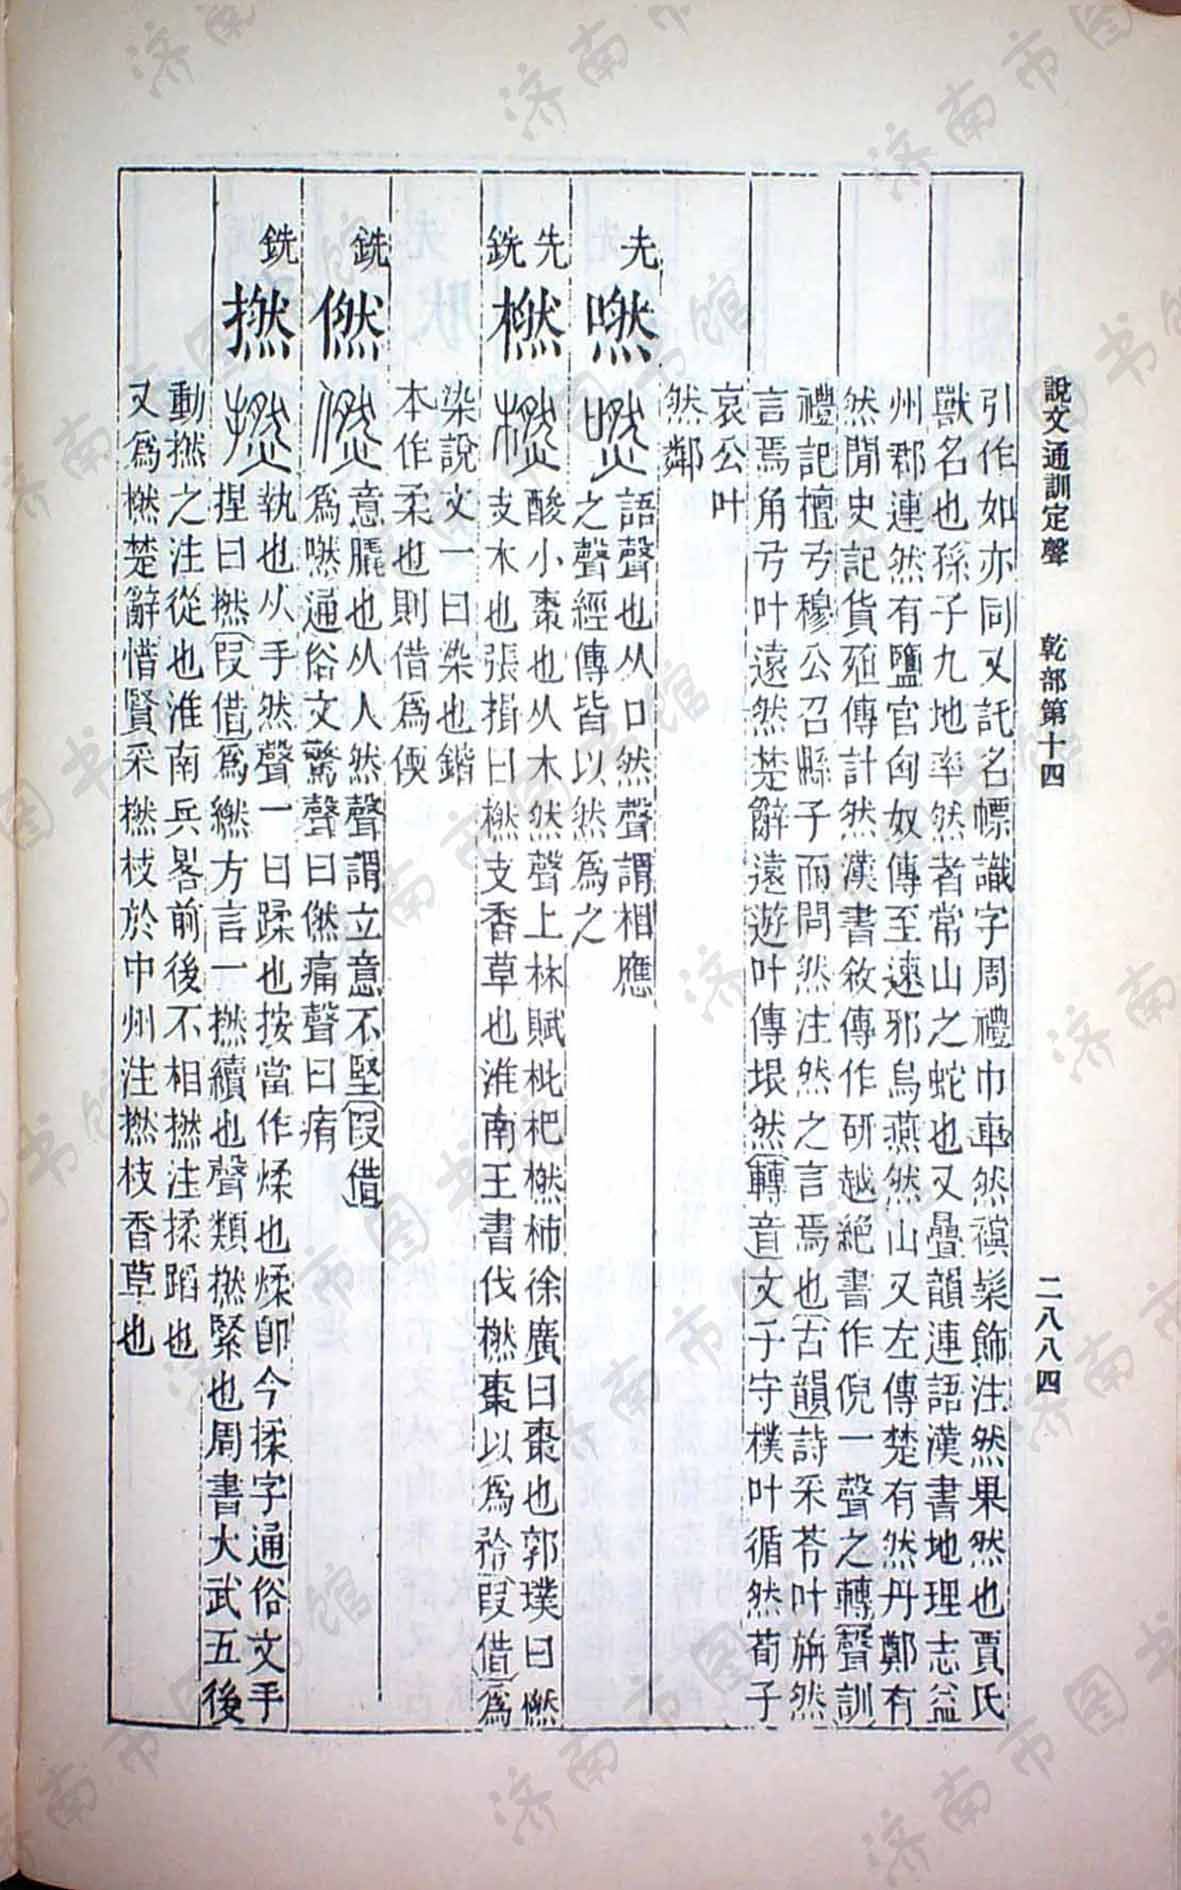 說文通訓定聲　乾部第十四　二八八四
引作如亦同又託名幖識字周禮巾車然𧜀髤飾注然果然也賈氏
獸名也孫子九地率然者常山之蛇也又疊韻連語漢書地理志益
州郡連然有鹽官匈奴傳至速邪烏燕然山又左傳楚有然丹鄭有
然閒史記貨殖傳計然漢書敘傳作研越絕書作倪一聲之轉聲訓
禮記檀弓穆公召縣子而問然注然之言焉也古韻詩采苓叶旃然
言焉角弓叶遠然楚辭遠遊叶傳垠然轉音文子守樸叶循然荀子
哀公叶
然鄰
先
嘫 語聲也从口然聲謂相應
之聲經傳皆以然為之
先
銑
橪 酸小棗也从木然聲上林賦枇杷橪柿徐廣曰棗也郭璞曰橪
支木也張揖曰橪支香草也淮南王書伐橪棗以為矜叚借為
染說文一曰染也鍇
本作柔也則借為偄
銑
㒄 意膬也从人然聲謂立意不堅叚借
為嘫通俗文驚聲曰㒄痛聲曰痏
銑
撚 執也从手然聲一曰蹂也按當作煣也煣卽今揉字通俗文手
捏曰撚叚借為繎方言一撚續也聲類撚緊也周書大武五後
動撚之注從也淮南兵畧前後不相撚注揉蹈也
又為橪楚辭惜賢采撚枝於中州注撚枝香草也